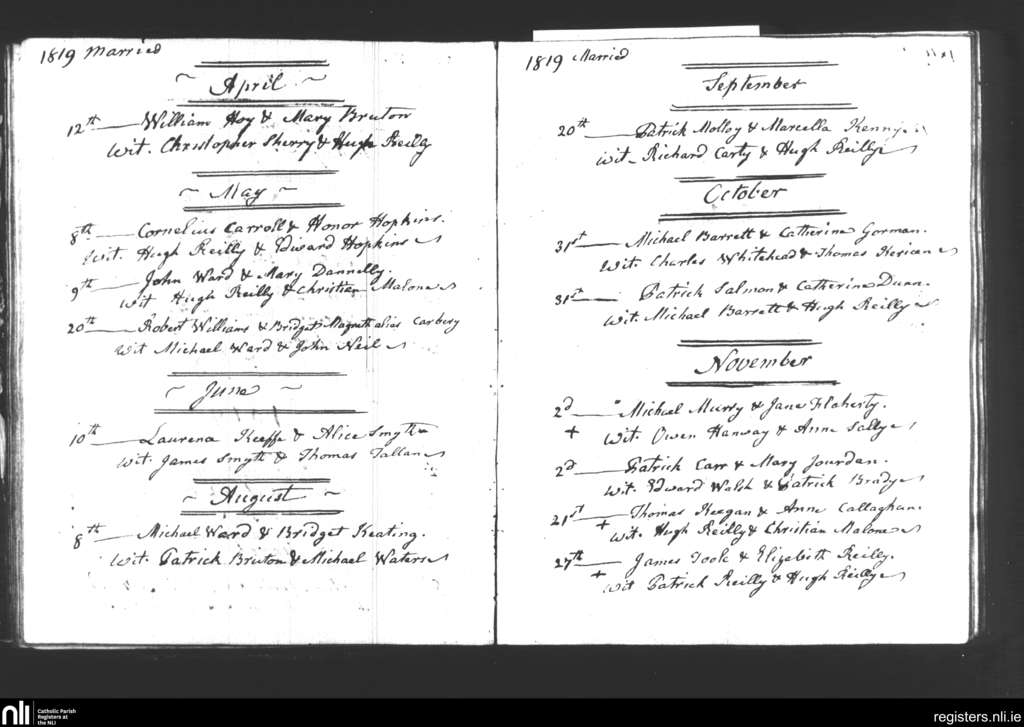 1819 Married
April
12th William Hoy & Mary Bruton
Wit. Christopher Sherry & Hugh Reilly
May
8th Cornelius Carroll & Honor Hopkins.
Wit. Hugh Reilly & Edward Hopkins
9th John Ward & Mary Dannelly.
Wit Hugh Reilly & Christian Malone
20th Robert Williams & Bridget Magrath alias Carbery
Wit Michael Ward & John Neil
June
10th Laurena Keeffe & Alice Smyth
Wit. James Smyth & Thomas Tallan
August
8th Michael Ward & Bridget Keating.
Wit. Patrick Bruton & Michael Waters
1819 Married
September
20th Patrick Molloy & Marcella Kenny.
Wit. Richard Carty & Hugh Reilly
October
31st Michael Barrett & Catherine Gorman.
Wit. Charles Whitehead & Thomas
31st Patrick Salmon & Catherine Dunn.
Wit. Michael Barrett & Hugh Reilly
November
2d Michael Murry & Jane Flaherty.
+ Wit. Owen Hanway & Anne Sally
2d Patrick Carr & Mary Jourdan.
Wit. Edward Walsh & Patrick Brady
21st Thomas Keegan & Anne Callaghan.
+ Wit. Hugh Reilly & Christian Malone
27th James Toole & Elizabeth Reilly.
+ Wit Patrick Reilly & Hugh Reilly
nli Catholic Parish
Registers at
the NLI
registers.nli.ie